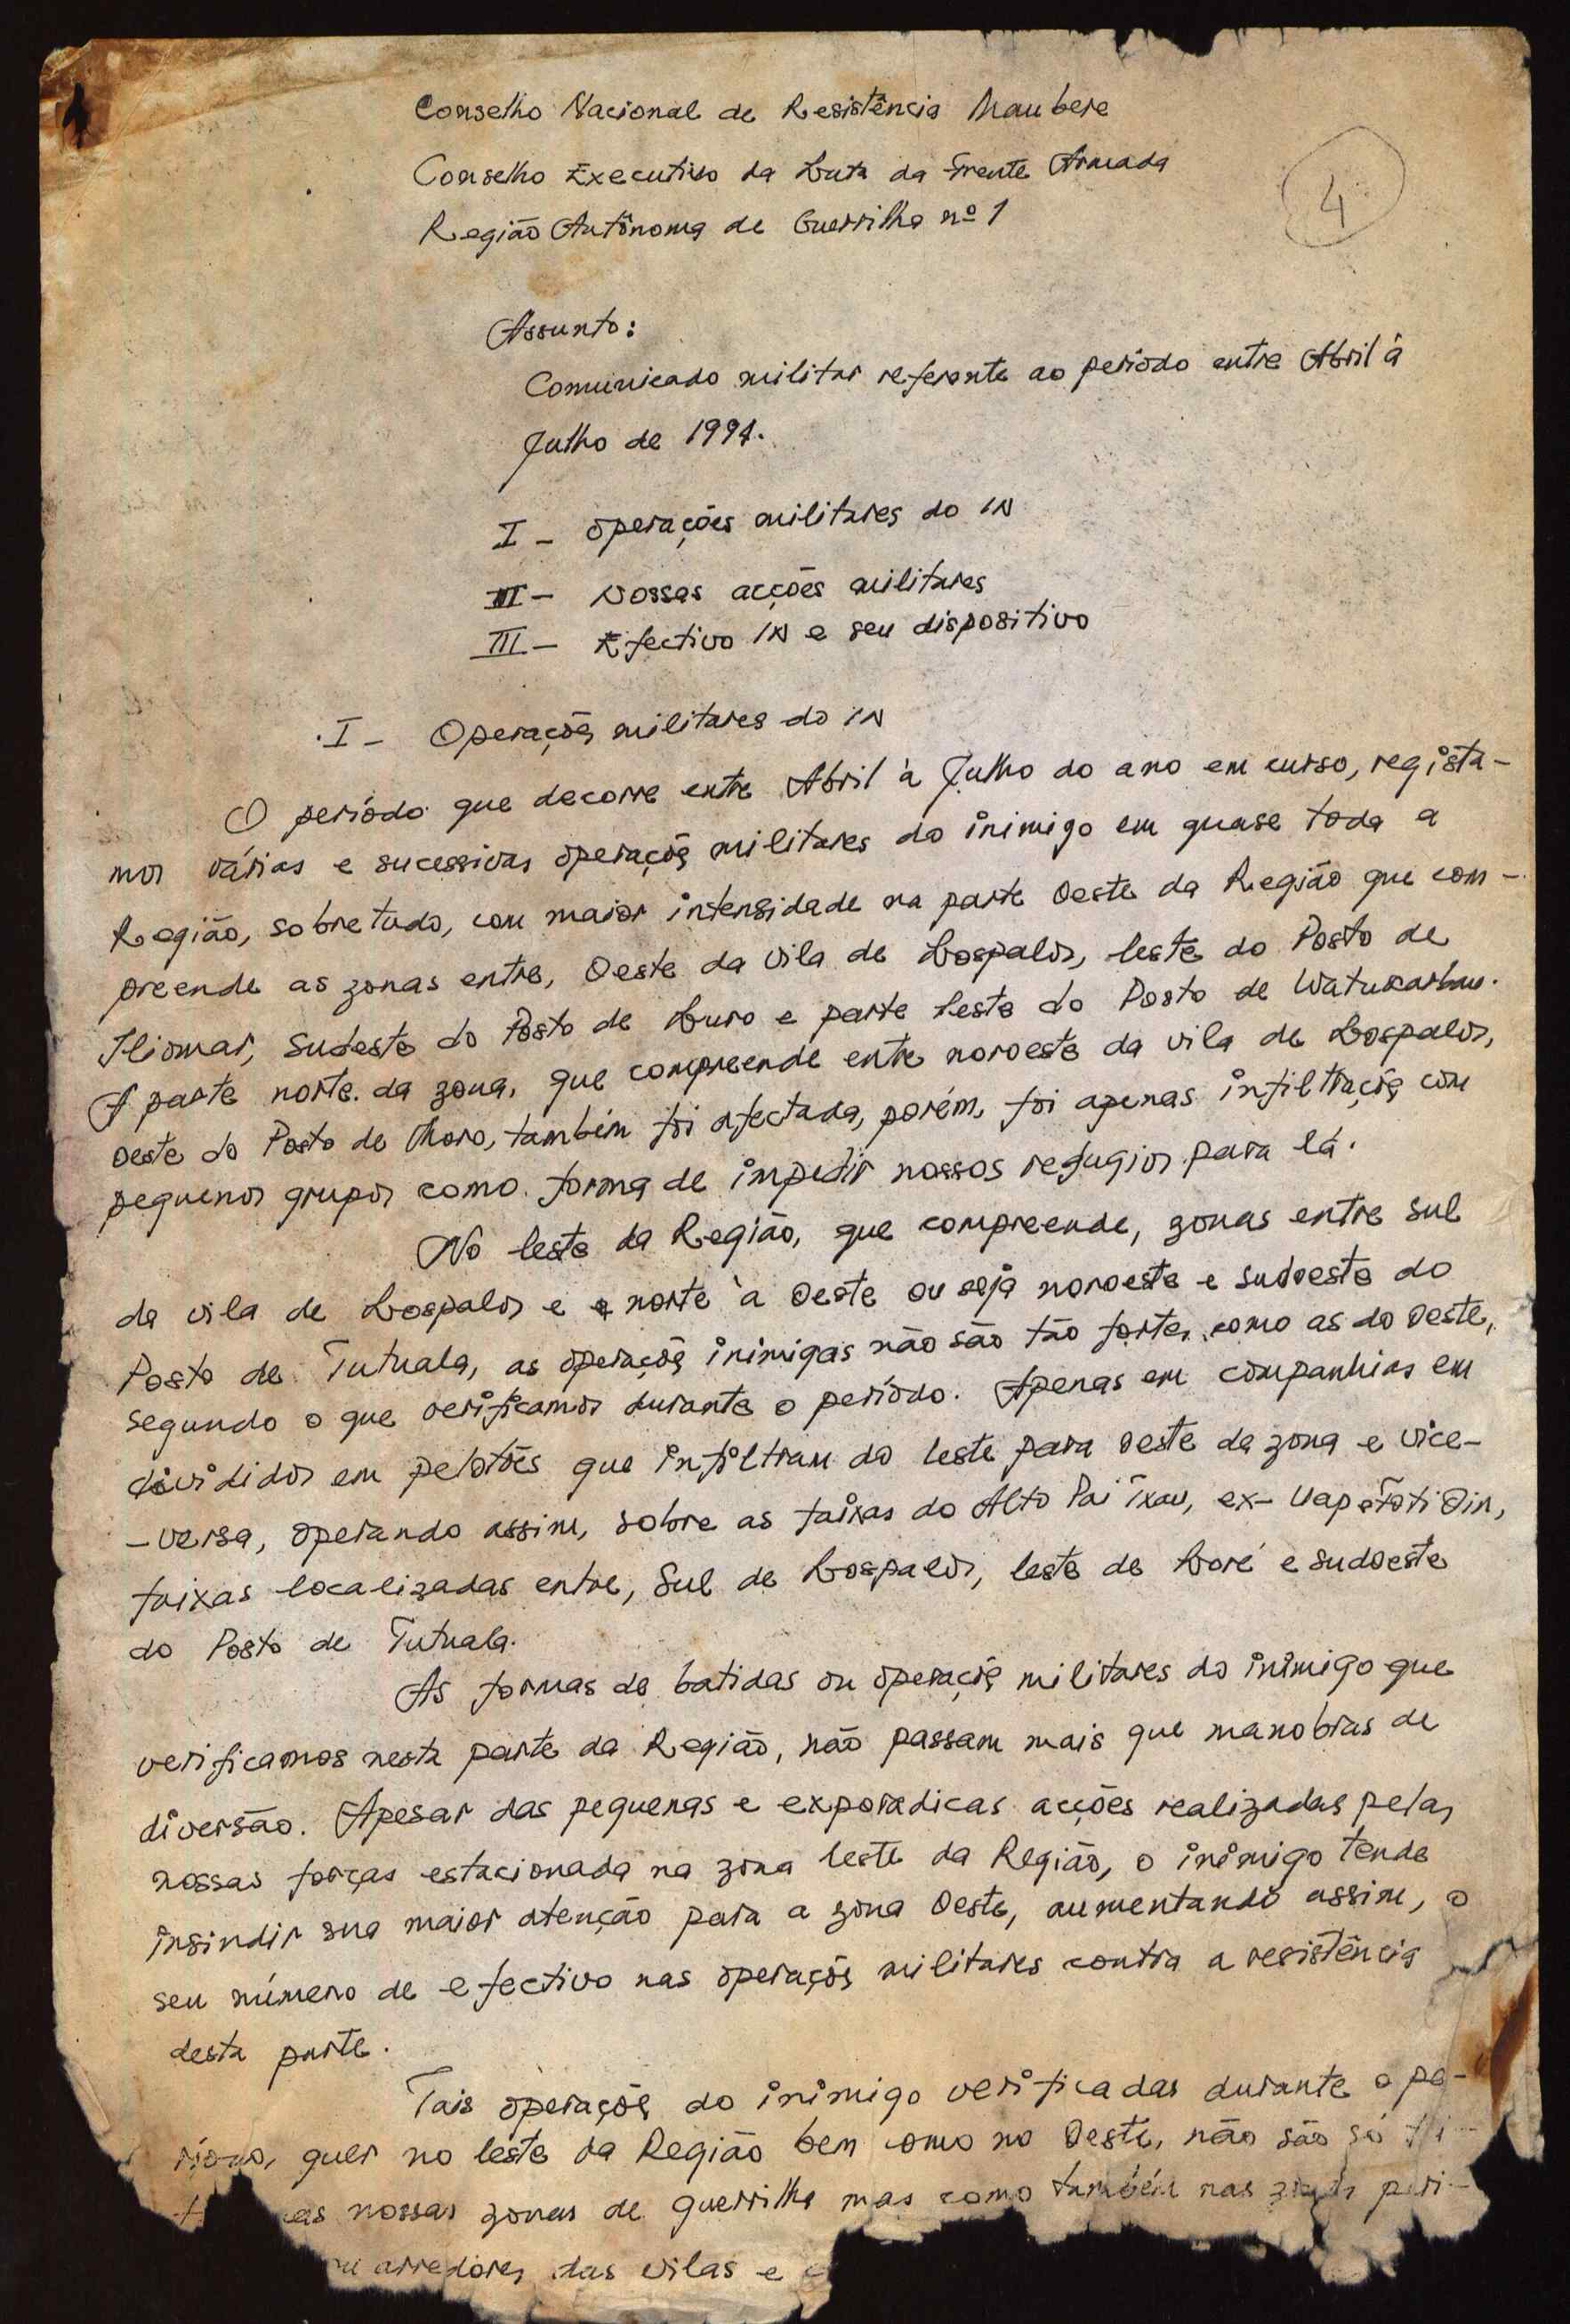 Conselho Nacional de Resistência Maubere
Conselho Executivo da Luta da Frente Armada
Região Autônoma de Guerrilha nº 1
4
Assunto:
Comunicado militar referente ao período entre Abril à
Julho de 1994.
I - Operações militares do IN
II - Nossas acções militares
III - Efectivo IN e seu dispositivo
I - Operações militares do IN
O período que decorre entre Abril à Julho do ano em curso, regista-
mos várias e sucessivas operações militares do inimigo em quase toda a
Região, sobretudo, com maior intensidade na parte Oeste da Região que com-
preende as zonas entre, Oeste da vila de Lospalos, leste do Posto de
Iliomar, Sudeste do Posto de Luro e parte leste do Posto de Watukarbau.
A parte norte da zona, que compreende entre noroeste da vila de Lospalos,
Oeste do Posto de Moro, também foi afectada, porém, foi apenas infiltrações com
pequenos grupos como forma de impedir nossos refugios para lá.
No leste da Região, que compreende, zonas entre sul
da vila de Lospalos e norte à Oeste ou seja noroeste e sudoeste do
Posto de Tutuala, as operações inimigas não são tão fortes como as do Oeste,
segundo o que verificamos durante o período. Apenas em companhias em
divididos em pelotões que infiltram do leste para Oeste da zona e vice-
-versa, operando assim, sobre as faixas do Alto Pai Txau, ex-
faixas localizadas entre, Sul de Lospalos, leste de Loré e sudoeste
do Posto de Tutuala.
As formas de batidas ou operações militares do inimigo que
verificamos nesta parte da Região, não passam mais que manobras de
diversão. Apesar das pequenas e exporadicas acções realizadas pelas
nossas forças estacionada na zona leste da Região, o inimigo tende
insindir sua maior atenção para a zona Oeste, aumentando assim, o
seu número de efectivo nas operações militares contra a resistência
desta parte.
Tais operações do inimigo verificadas durante o pe-
ríodo, quer no leste da Região bem como no Oeste, não são só
nossas zonas de guerrilha mas como também nas zonas peri-
arredores das vilas e